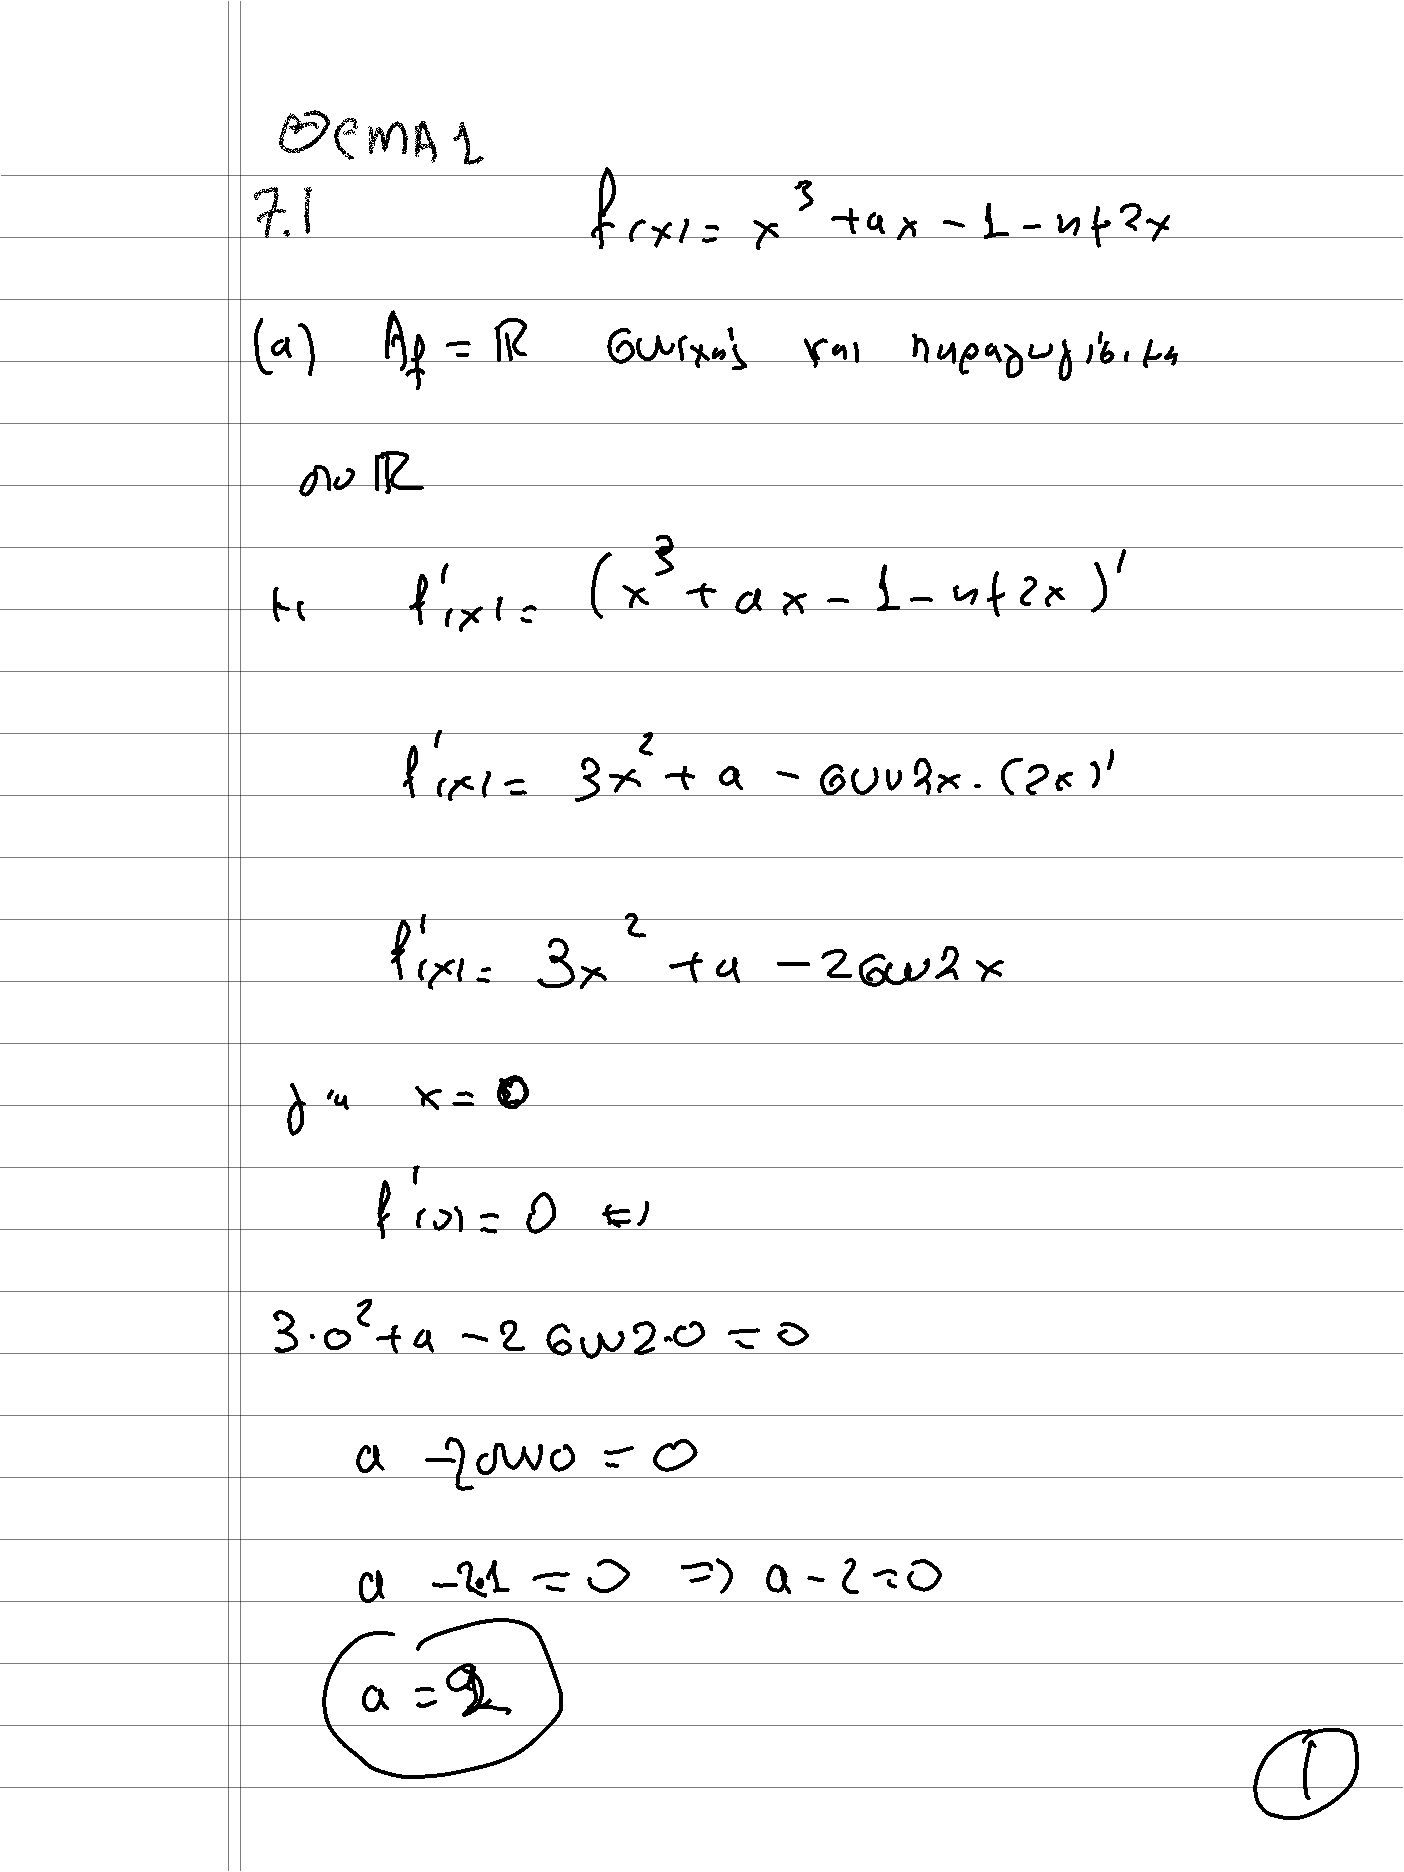 ΘΕΜΑ 1
7.1 f(x) = x³ + αx - 1 - ημ2x
(α) Af = ℝ συνεχής και παραγωγίσιμη
στο ℝ
με f'(x) = (x³ + αx - 1 - ημ2x)'
f'(x) = 3x² + α - συν2x · (2x)'
f'(x) = 3x² + α - 2συν2x
για x = 0
f'(0) = 0 ⇔
3·0² + α - 2 συν2·0 = 0
α - 2συν0 = 0
α - 2·1 = 0 ⇒ α - 2 = 0
α = 2
1